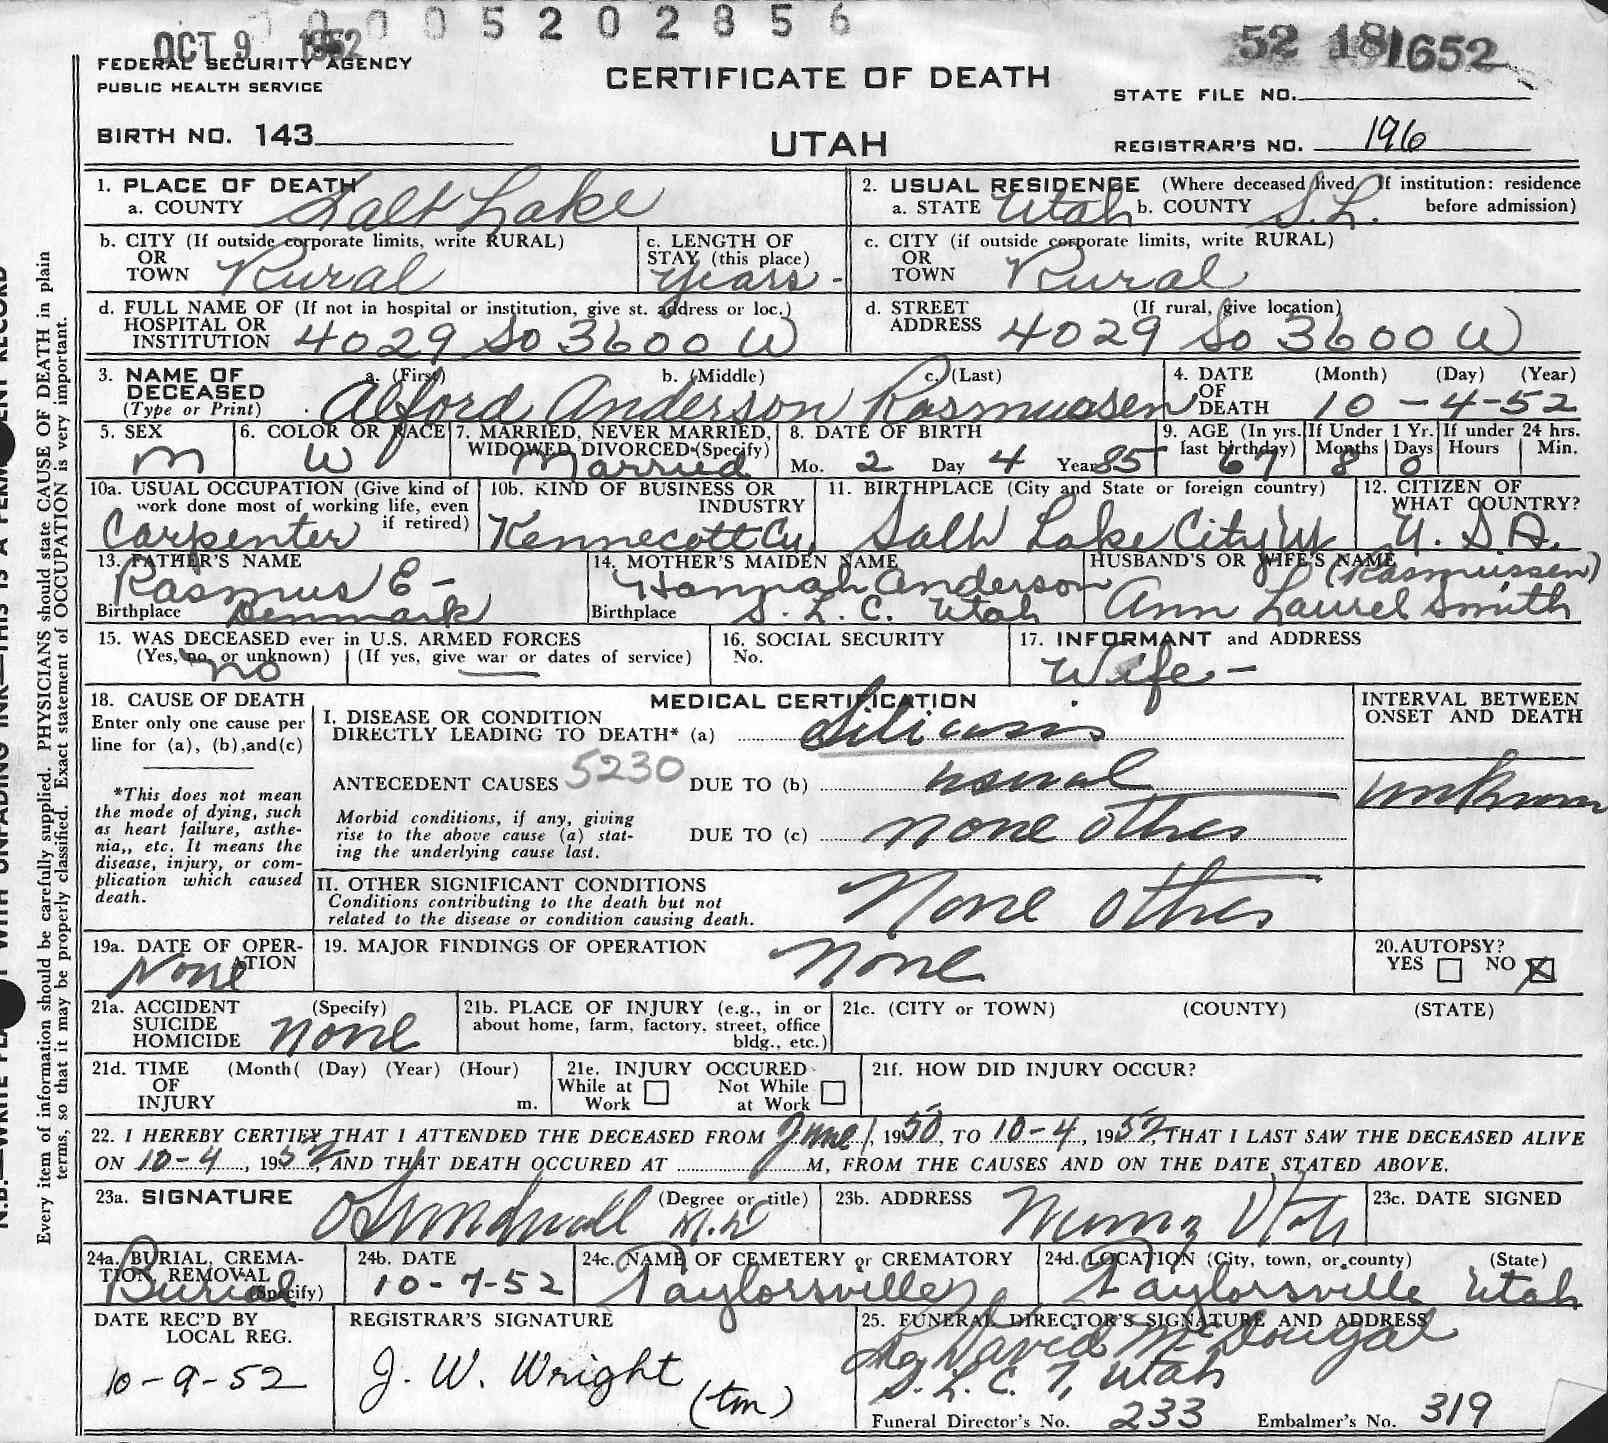 0 0 0 0 5 2 0 2 8 5 6
OCT 9 1952
52 18 1652
FEDERAL SECURITY AGENCY
PUBLIC HEALTH SERVICE
CERTIFICATE OF DEATH
STATE FILE NO.
BIRTH NO. 143
UTAH
REGISTRAR'S NO. 196
1. PLACE OF DEATH
a. COUNTY Salt Lake
2. USUAL RESIDENCE (Where deceased lived. If institution: residence
a. STATE Utah b. COUNTY S.L. before admission)
b. CITY (If outside corporate limits, write RURAL)
OR
TOWN Rural
c. LENGTH OF
STAY (this place)
years -
c. CITY (if outside corporate limits, write RURAL)
OR
TOWN Rural
d. FULL NAME OF (If not in hospital or institution, give st. address or loc.)
HOSPITAL OR
INSTITUTION 4029 So 3600 W
d. STREET (If rural, give location)
ADDRESS 4029 So 3600 W
3. NAME OF
DECEASED
(Type or Print)
a. (First) b. (Middle) c. (Last)
Alford Anderson Rasmussen
4. DATE (Month) (Day) (Year)
OF
DEATH 10 - 4 - 52
5. SEX
M
6. COLOR OR RACE
W
7. MARRIED, NEVER MARRIED,
WIDOWED, DIVORCED (Specify)
Married
8. DATE OF BIRTH
Mo. 2 Day 4 Year 85
9. AGE (In yrs.
last birthday)
67
If Under 1 Yr.
Months Days
8 0
If under 24 hrs.
Hours Min.
10a. USUAL OCCUPATION (Give kind of
work done most of working life, even
if retired)
Carpenter
10b. KIND OF BUSINESS OR
INDUSTRY
Kennecott Cu.
11. BIRTHPLACE (City and State or foreign country)
Salt Lake City Ut
12. CITIZEN OF
WHAT COUNTRY?
U. S. A.
13. FATHER'S NAME
Rasmus E -
Birthplace Denmark
14. MOTHER'S MAIDEN NAME
Hannah Anderson
Birthplace S. L. C. Utah
HUSBAND'S OR WIFE'S NAME
(Rasmussen)
Ann Laurel Smith
15. WAS DECEASED ever in U.S. ARMED FORCES
(Yes, no, or unknown) (If yes, give war or dates of service)
no —
16. SOCIAL SECURITY
No.
17. INFORMANT and ADDRESS
Wife -
18. CAUSE OF DEATH
Enter only one cause per
line for (a), (b), and (c)
*This does not mean
the mode of dying, such
as heart failure, asthe-
nia,, etc. It means the
disease, injury, or com-
plication which caused
death.
MEDICAL CERTIFICATION
I. DISEASE OR CONDITION
DIRECTLY LEADING TO DEATH* (a) Silicosis
ANTECEDENT CAUSES 5230 DUE TO (b) usual
Morbid conditions, if any, giving
rise to the above cause (a) stat-
ing the underlying cause last.
DUE TO (c) none other
INTERVAL BETWEEN
ONSET AND DEATH
unknown
II. OTHER SIGNIFICANT CONDITIONS
Conditions contributing to the death but not
related to the disease or condition causing death.
None other
19a. DATE OF OPER-
ATION
None
19. MAJOR FINDINGS OF OPERATION
None
20. AUTOPSY?
YES NO X
21a. ACCIDENT (Specify)
SUICIDE
HOMICIDE none
21b. PLACE OF INJURY (e.g., in or
about home, farm, factory, street, office
bldg., etc.)
21c. (CITY or TOWN) (COUNTY) (STATE)
21d. TIME (Month( (Day) (Year) (Hour)
OF
INJURY m.
21e. INJURY OCCURED
While at Not While
Work at Work
21f. HOW DID INJURY OCCUR?
22. I HEREBY CERTIFY THAT I ATTENDED THE DECEASED FROM June 1, 1950, TO 10-4, 1952, THAT I LAST SAW THE DECEASED ALIVE
ON 10-4, 1952, AND THAT DEATH OCCURED AT M, FROM THE CAUSES AND ON THE DATE STATED ABOVE.
23a. SIGNATURE (Degree or title)
M.D.
23b. ADDRESS
Murray Utah
23c. DATE SIGNED
24a. BURIAL, CREMA-
TION, REMOVAL
(Specify)
Burial
24b. DATE
10-7-52
24c. NAME OF CEMETERY or CREMATORY
Taylorsville
24d. LOCATION (City, town, or county) (State)
Taylorsville Utah
DATE REC'D BY
LOCAL REG.
10-9-52
REGISTRAR'S SIGNATURE
J. W. Wright
(tm)
25. FUNERAL DIRECTOR'S SIGNATURE AND ADDRESS
David McDougal
S. L. C. 7, Utah
Funeral Director's No. 233 Embalmer's No. 319
Every item of information should be carefully supplied. PHYSICIANS should state CAUSE OF DEATH in plain
terms, so that it may be properly classified. Exact statement of OCCUPATION is very important.